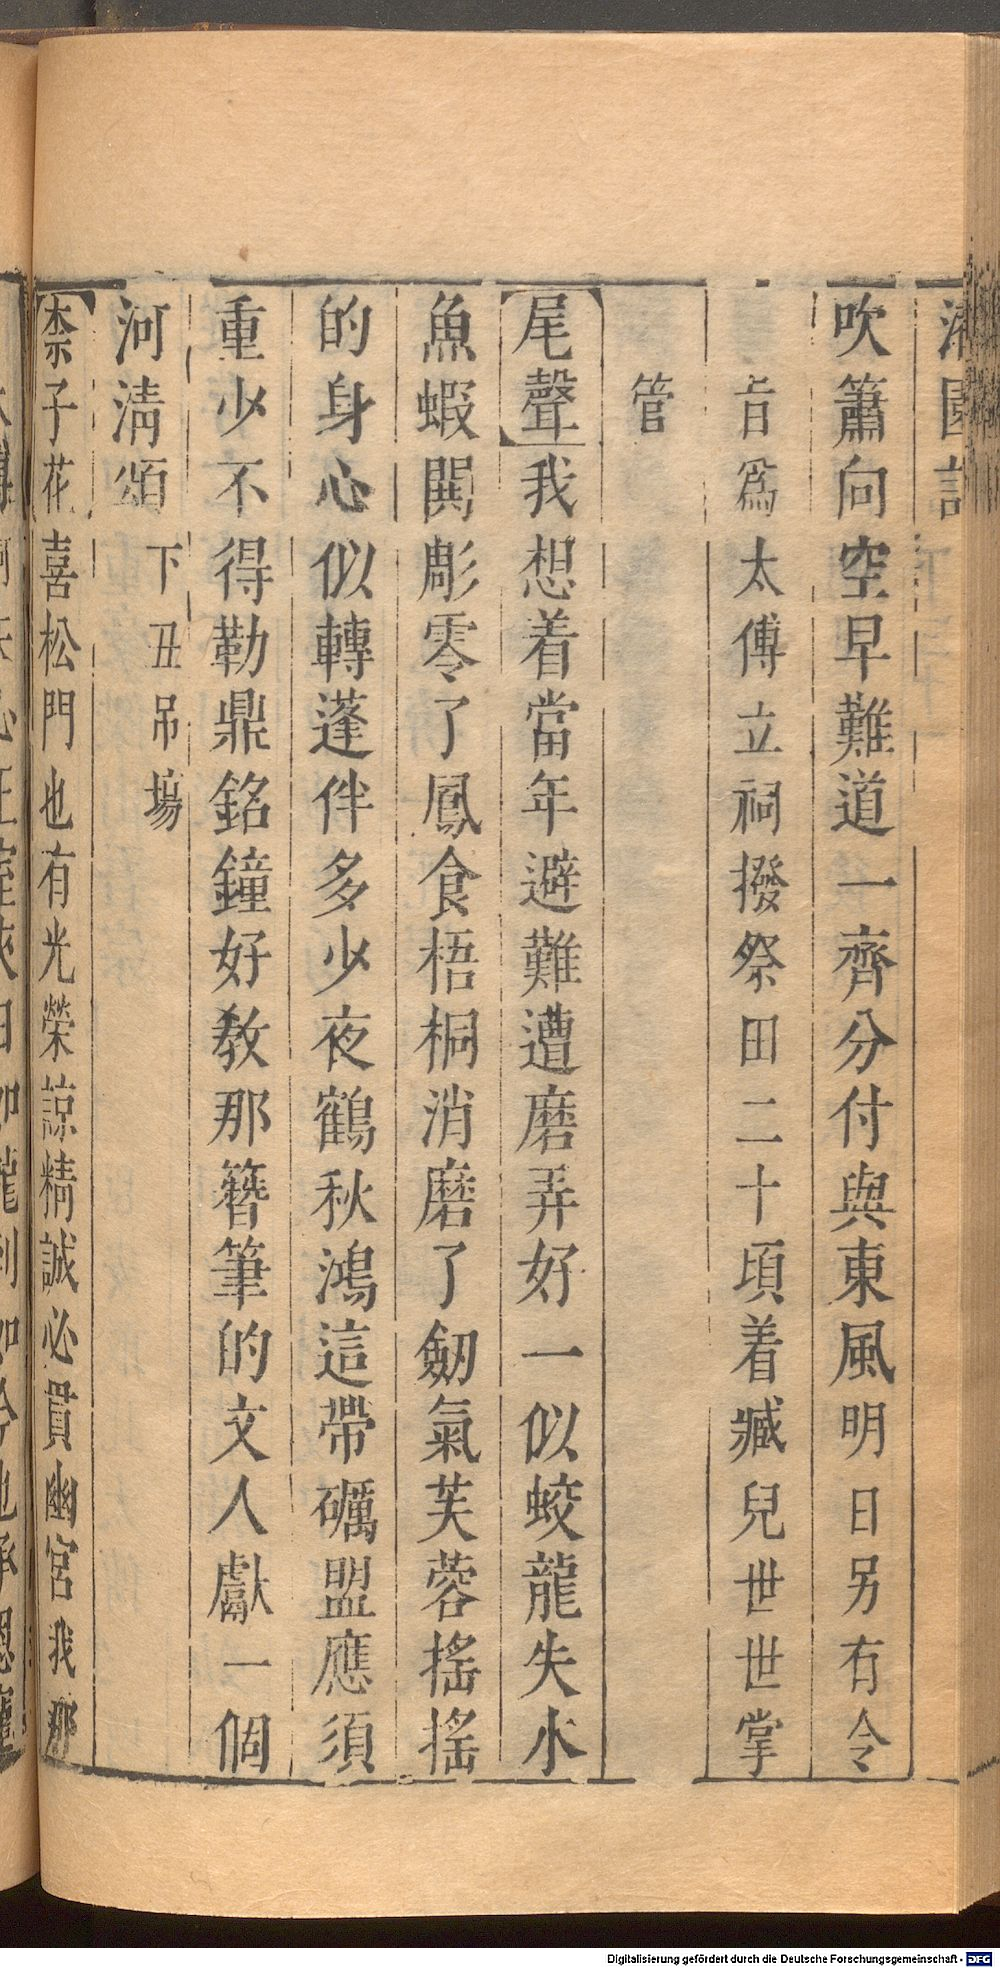 吹簫向空早難道一齊分付與東風明日另有令
旨爲太傅立祠撥祭田二十頃着臧兒世世掌
管
尾聲我想着當年避難遭磨弄好一似蛟龍失水
魚蝦閧彫零了鳳食梧桐消磨了劒氣芙蓉搖搖
的身心似轉蓬伴多少夜鶴秋鴻這帶礪盟應須
重少不得勒鼎銘鐘好教那簪筆的文人獻一個
河淸頌下丑吊塲
柰子花喜松門也有光榮諒精誠必貫幽宮我那
Digitalisierung gefördert durch die Deutsche Forschungsgemeinschaft - DFG